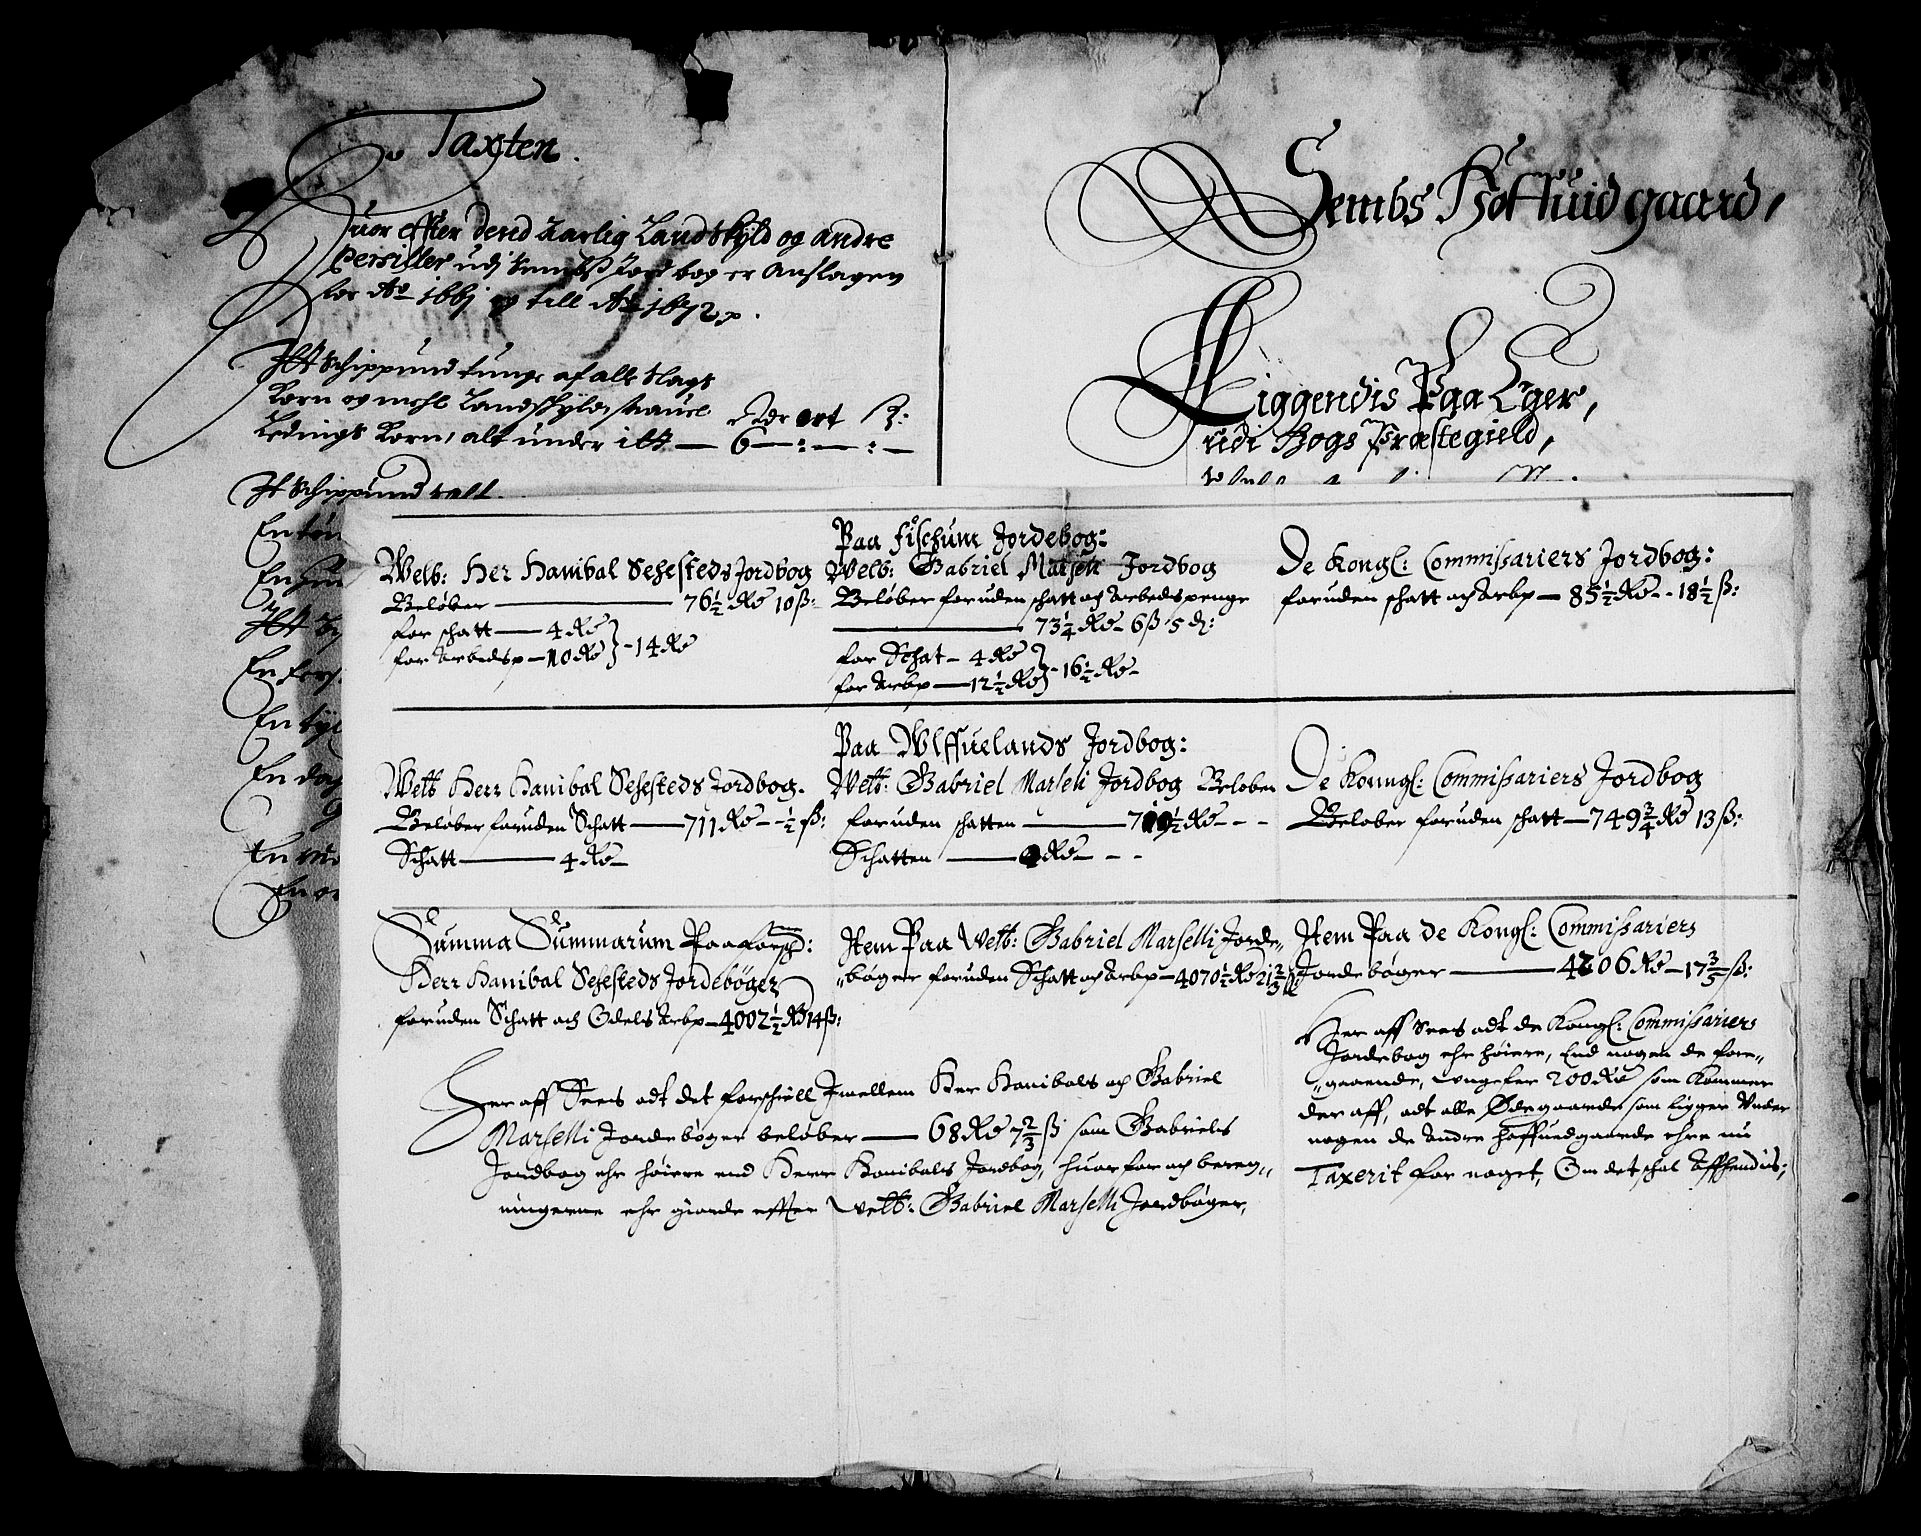 Taxten.
Huor efter dend Aarlig Landskyld og andre
Persiller udj Sembs Jordbog er Anslagen
for Ao 1661 og till Ao 1672
Itt Schippund tunge af alt slags
Korn og mehl Landskyld, saauel Rdr ort ß:
Ledings Korn, alt under 1 lb — 6 — : — : —
It Schippund salt.
En tøn
En
Itt
En
En
En
En
En
Sembs Hoffuid gaard,
Liggendis Paa Eger,
udi Hogs Præstegield,
Paa fischum Jordebog:
Welb: Her Hanibal Sehesteds Jordbog
Beløber — 76½ Rd 10 ß:
for schatt — 4 Rd
for Arbedsp — 10 Rd } - 14 Rd
Welb: Gabriel Marseli Jordbog
Beløber foruden schatt och Arbedspenge
— 73¼ Rd - 6 ß 5 d:
for Schat - 4 Rd
for Arbp — 12½ Rd } - 16½ Rd -
De Kongl: Commissariers Jordbog:
foruden schatt och Arbp — 85½ Rd - - 18½ ß:
Paa Wlffuelands Jordbog:
Welb Herr Hanibal Sehesteds Jordbog.
Beløber foruden Schatt — 711 Rd - - ½ ß:
Schatt — 4 Rd -
Welb: Gabriel Marseli Jordbog Beløber
foruden schatten — ½ Rd - - -
Schatten — Rd - - -
De Konngl: Commissariers Jordbog
Beløber foruden schatt — 749¾ Rd 13 ß:
Summa Summarum Paa forschr:
Herr Hanibal Sehesteds Jordebøger
foruden Schatt och Odels Arbp — 4002½ Rd 14 ß:
Item Paa Welb: Gabriel Marselli Jorde„
„bøger foruden Schatt och Arbp — 4070½ Rd 21⅔ ß
Item Paa de Kongl: Commissariers
Jordebøger — 4206 Rd — 17⅗ ß:
Her aff Sees adt det forschiell Imellem Her Hanibals och Gabriel
Marselli Jordebøger beløber — 68 Rd 7⅔ ß som Gabriels
Jordbog ehr høiere end Herr Hanibals Jordbog, huorfor och bereg„
ningerne ehr giorde effter Welb: Gabriel Marselli Jordbøger,
Her aff Sees adt de Kongl: Commissariers
Jordebog ehr høiere, End nogen de fore„
„gaaende, ungefer 200 Rd som kommer
der aff, adt alle Ødegaarde som ligger Under
nogen de Andre hoffuedgaarde ehre nu
Taxerit for noget, Om det schal Affhendis;